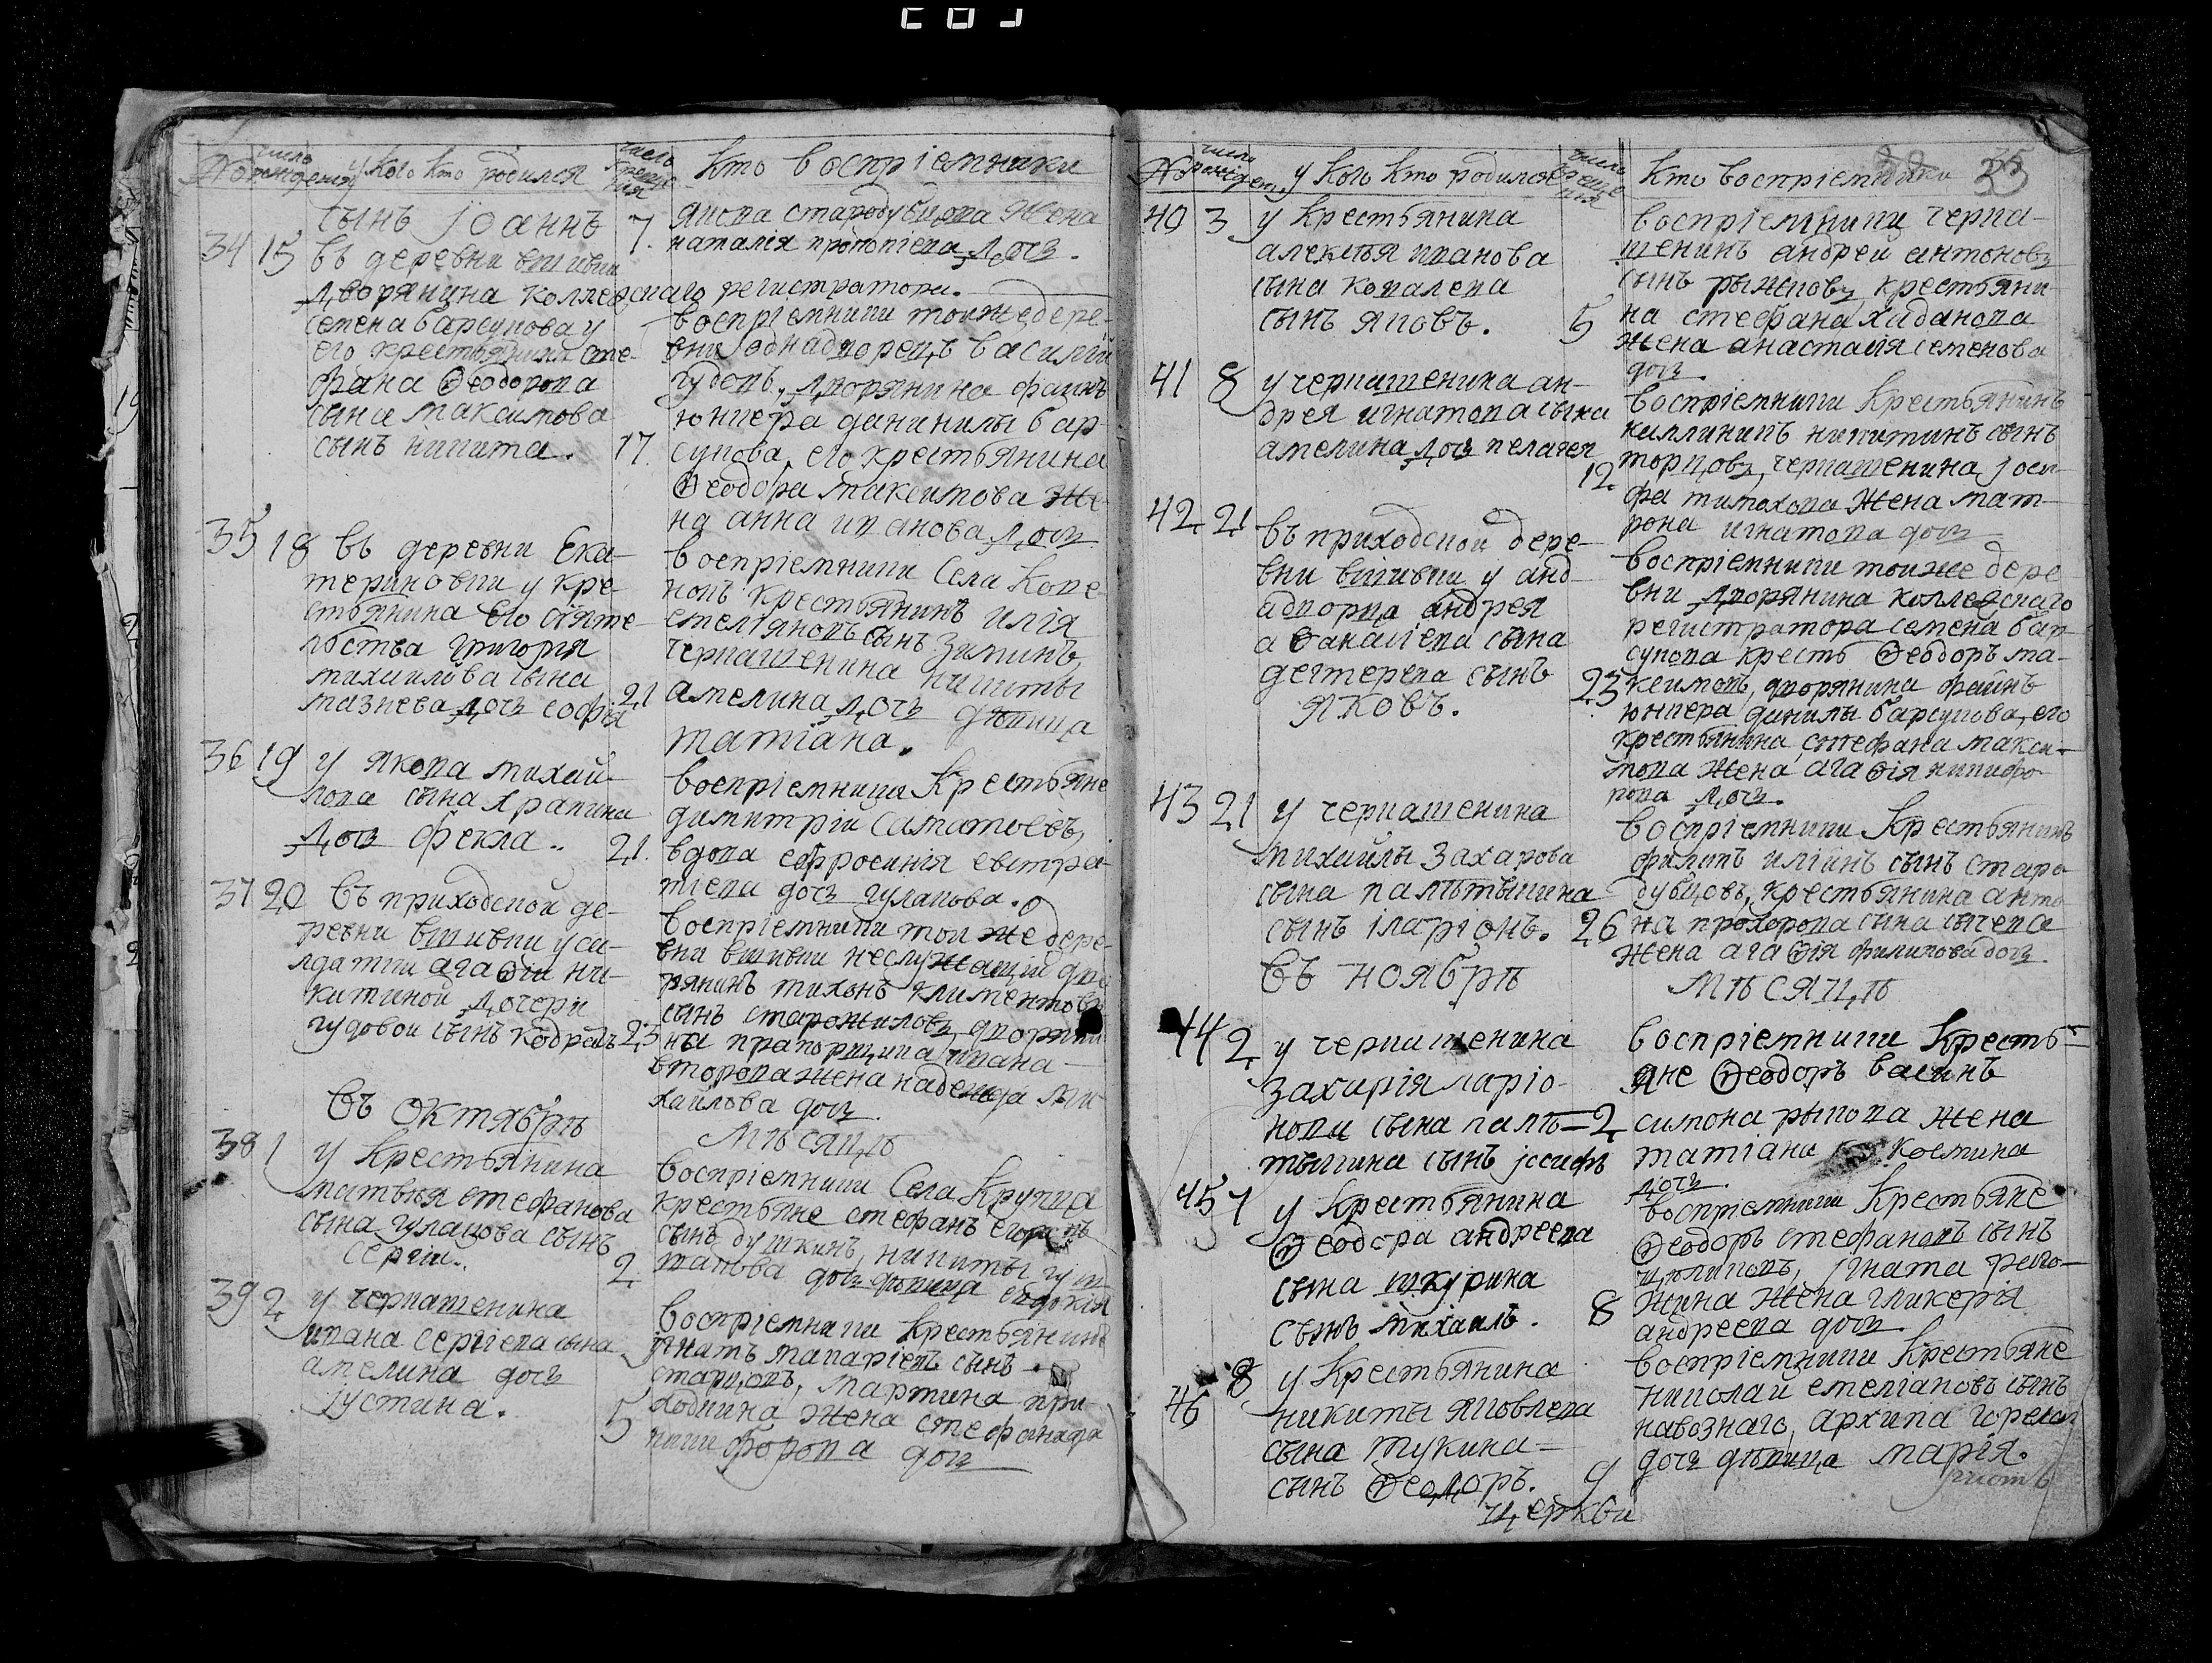 №
число рождения
у кого кто родился
число крещения
кто воспріемники
сынъ іоаннъ 7.
якова стародубцова жена
наталія протопіева дочь.
34 15 въ деревни вшивки
дворянина коллежскаго регистратора
семена барсукова у
его крестьянина сте-
фана Ѳеодорова
сына максимова
сынъ никита. 17.
воспріемники тоижедере-
вни однадворецъ василій
гудовъ, дворянина фаинъ
юнкера даниилы бар-
сукова, его крестьянина
Ѳеодора максимова же-
на анна иванова дочь
35 18 въ деревни Ека-
териновки у кре-
стьянина его сіяте-
льства григорія
михаилова сына
мазнева дочь софія 21
воспріемники Села Копе-
нокъ крестьянинъ илія
емеліяновъ сынъ Зиминъ,
черпашенина никиты
амелина дочь дѣвица
татіана.
36 19 у якова михай-
лова сына храпина
дочь фекла. 21.
воспріемники Крестьяне
димитрій саматоевъ,
вдова ефросинія евстра-
тіева дочь гулакова.
37 20 въ приходской де-
ревни вшивки у са-
лдатки агаѳіи ни-
китиной дочери
гудовой сынъ кодратъ 23
воспріемники тои же дере-
вни вшивки неслужащій дво
рянинъ тихонъ климентовъ
сынъ старожиловъ, дворяни
на прапорщика ивана
второва жена надежда ми-
хаилова дочь
въ октябрѣ мѣсяцѣ
38 1 у Крестьянина
матвѣя стефанова
сына гулацова сынъ
сергіи. 2
воспріемники Села Кручиа
крестьяне стефанъ егоровъ
сынъ душкинъ, никиты
дочь дѣвица евдокія
39 2 у черпашенина
ивана сергіева сына
амелина дочь
іустина. 5
воспріемники крестьянинъ
игнатъ макаріевъ сынъ
старцовъ, мартина при-
ходкина жена стефанида
никифорова дочь
№
число рожден.
у кого кто родился
число крещения
кто воспріемники 35
40 3 у крестьянина
алексѣя иванова
сына ковалева
сынъ яковъ. 5
воспріемники черпа-
шенинъ андрей антоновъ
сынъ рыжковъ, крестьяни-
на стефана хаданова
жена анастасія семенова
дочь
41 8 у черпашенина ан-
дрея игнатова сына
амелина дочь пелагея 12.
воспріемники крестьянинъ
каллиникъ никитинъ сынъ
торцовъ, черпашенина іоси-
фа тимохова жена мат-
рона игнатова дочь
42 21 въ приходской дере-
вни вшивки у анд-
адворца андрея
аѳанасіева сына
дегтерева сынъ
яковъ. 23
воспріемники тоиже дере
вни дворянина коллежскаго
регистратора семена бар-
сукова кресть Ѳеодоръ ма-
ксимовъ, дворянина фаинъ
юнкера данилы барсукова, его
крестьянина, стефана макси-
мова жена агаѳія никифо-
рова дочь.
43 21 у черпашенина
михайлы захарова
сына палътынина
сынъ іларіонъ. 26
воспріемники Крестьянинъ
филипъ иліинъ сынъ старо
дубцовъ, крестьянина анто
на прохорова сына сычева
жена агаѳія филипова дочь.
въ ноябрѣ мѣсяцѣ
44 2 у черпашенина
захарія ларіо-
нова сына палъ-
тынина сынъ іосифъ 2
воспріемники кресть-
яне Ѳеодоръ васинъ
симона рыкова жена
татіана космина
дочь.
45 7 у Крестьянина
Ѳеодора андреева
сына шкурина
сынъ михаилъ. 8
воспріемники Крестьяне
Ѳеодоръ стефановъ сынъ
щюкиновъ, игната рего-
жина жена гликерія
андреева дочь.
46 8 у Крестьянина
никиты яковлева
сына тукина
сынъ Ѳеодоръ. 9
воспріемники Крестьяне
николай емеліановъ сынъ
навознаго, архипа горелы
дочь дѣвица марія.
церкви